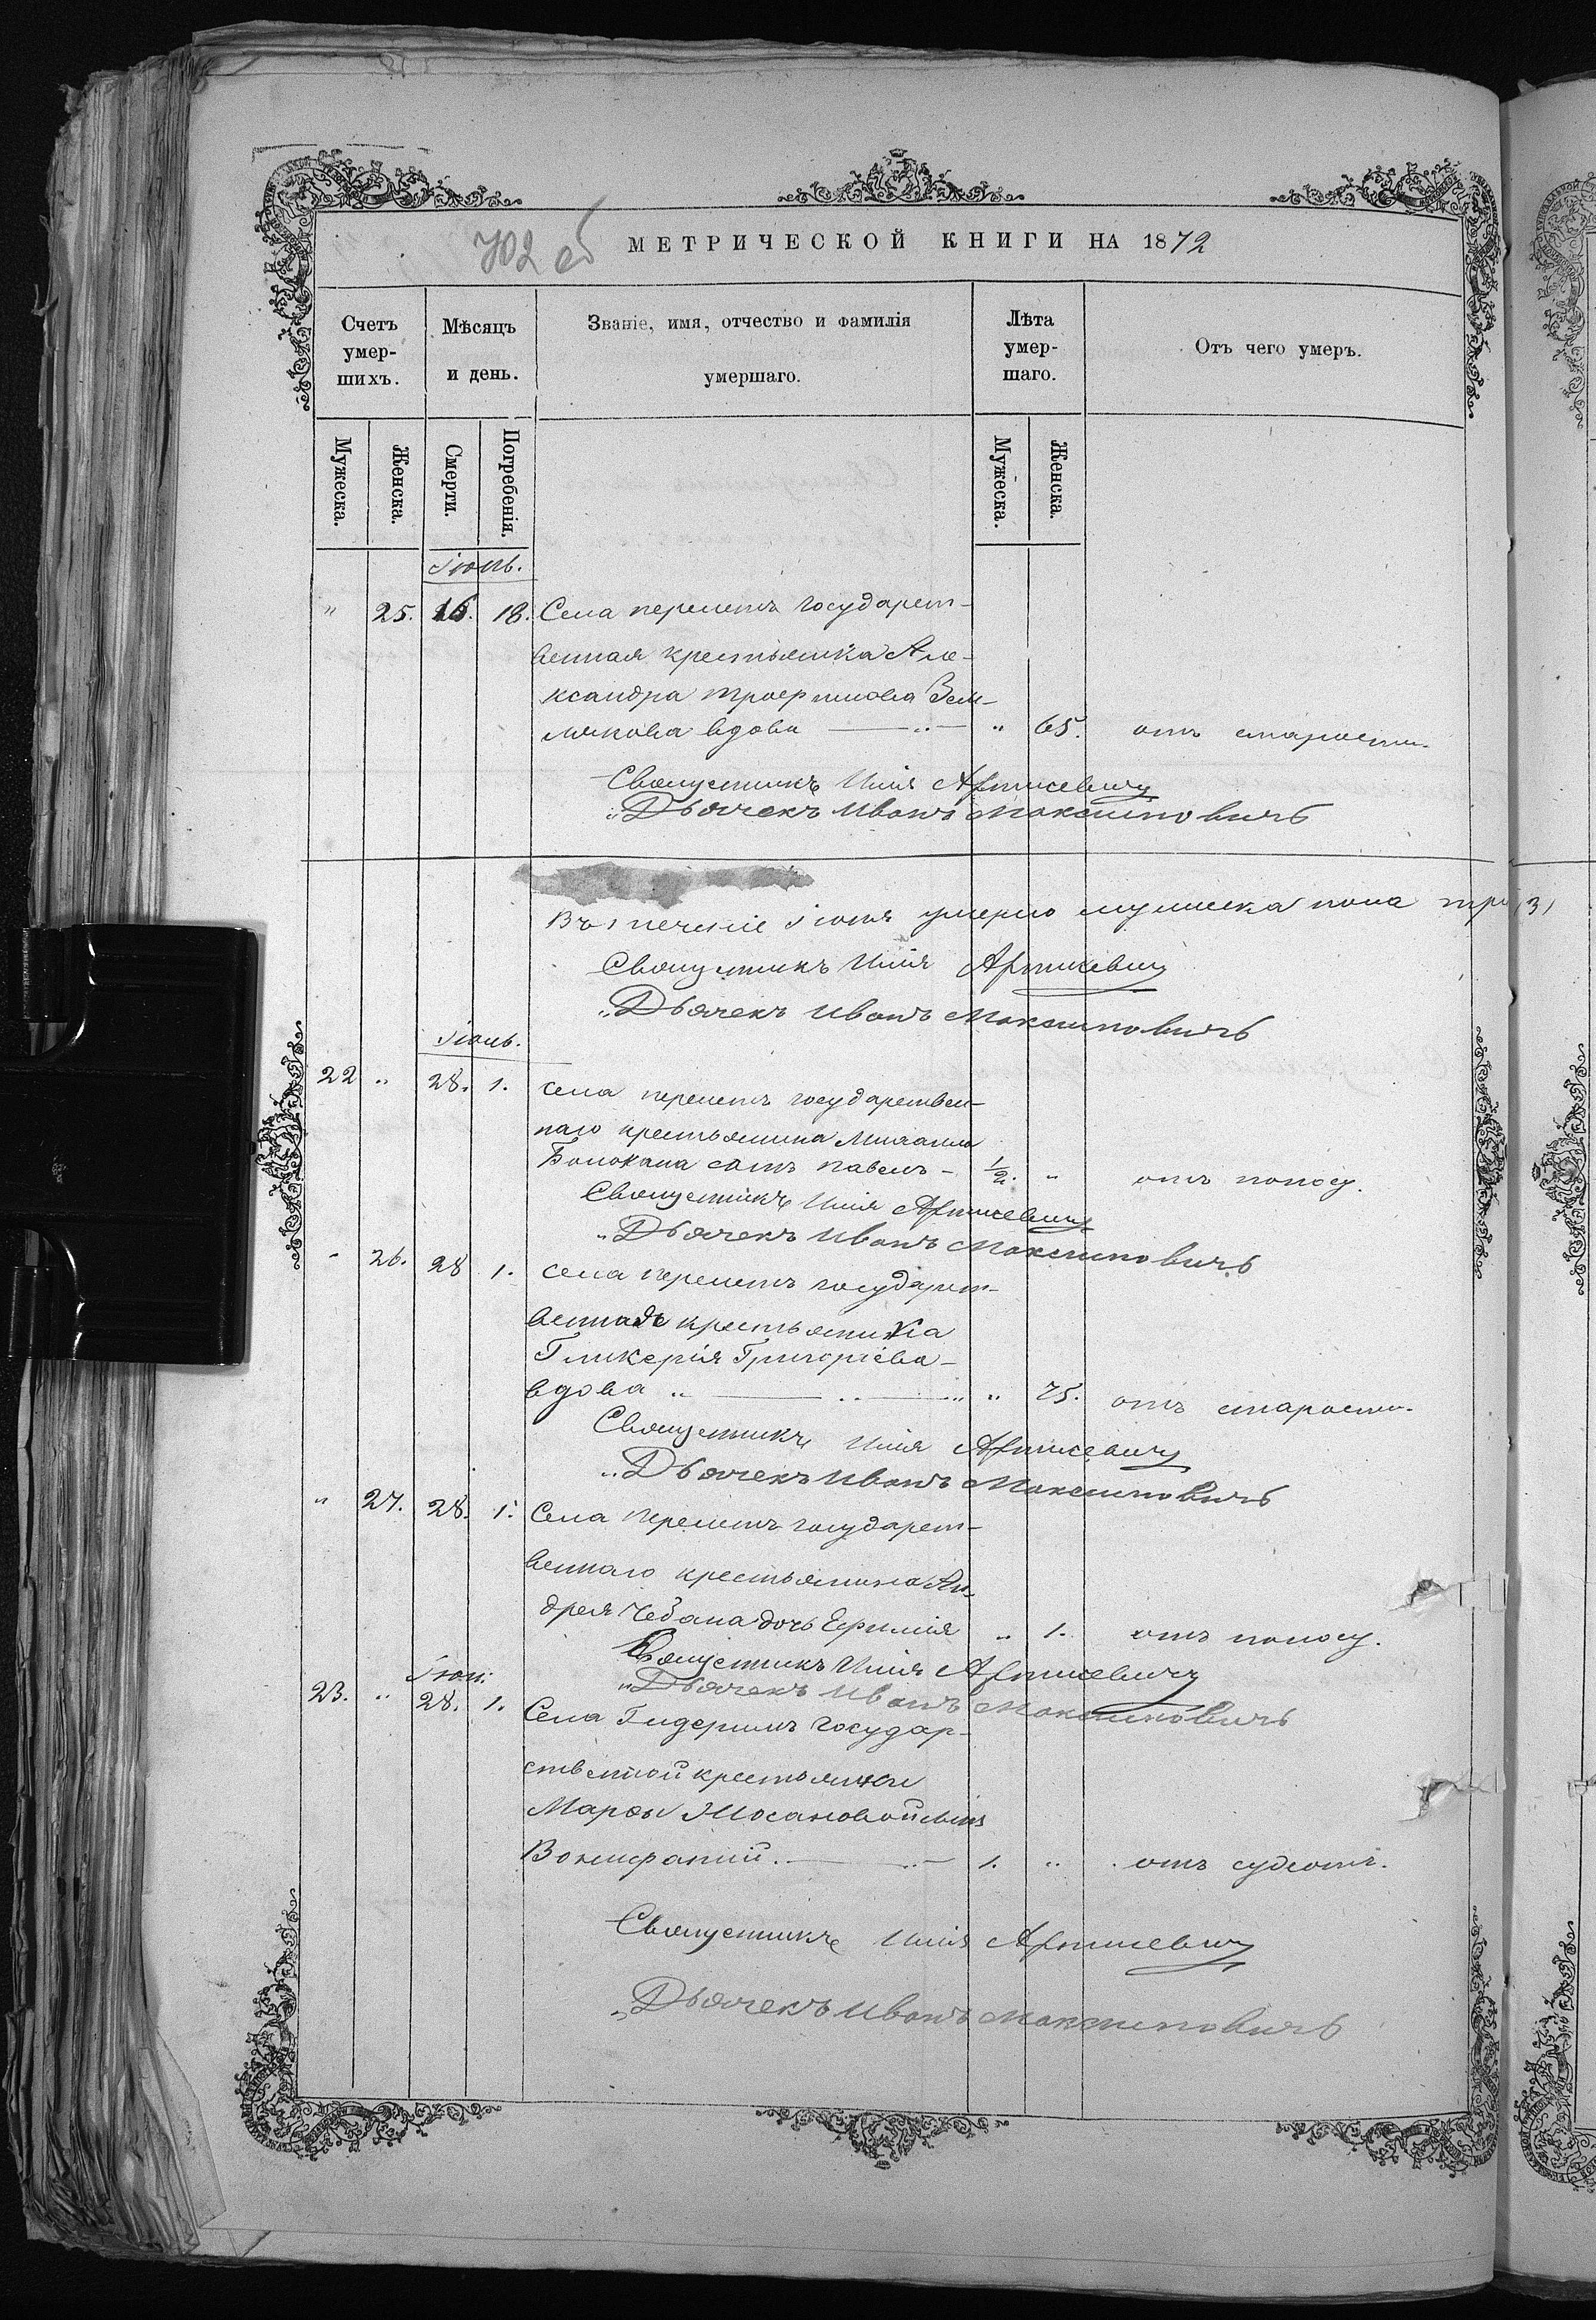 702 об
МЕТРИЧЕСКОЙ КНИГИ НА 1872
Счетъ умершихъ.
Мѣсяцъ и день.
Званіе, имя, отчество и фамилія умершаго.
Лѣта умершаго.
Отъ чего умеръ.
Мужеска.
Женска.
Смерти.
Погребенія.
Мужеска.
Женска.
Іюнь.
" 25. 16. 18. Села перелетъ государст-
венная крестьянка Але-
ксандра Зем-
лякова вдова " 65. отъ старости.
Священникъ Илія Артисевичъ
Дьячекъ Иванъ Максимовичъ
Въ теченіе Іюня умерло мужеска пола три (3)
Священникъ Илія Артисевичъ
Дьячекъ Иванъ Максимовичъ
Іюль.
22 " 28. 1. Села перелетъ государствен-
наго крестьянина Михаила
сынъ Павелъ - 1/2. " отъ поносу.
Священникъ Илія Артисевичъ
Дьячекъ Иванъ Максимовичъ
" 26. 28 1. Села перелетъ государст-
венная крестьянка
Гликерія Григоріева
вдова " 75. отъ старости.
Священникъ Илія Артисевичъ
Дьячекъ Иванъ Максимовичъ
" 27. 28. 1. Села перелетъ государст-
веннаго крестьянина Ан-
дрея Чебана дочь Ефимія " 1. отъ поносу.
Священникъ Илія Артисевичъ
Дьячекъ Иванъ Максимовичъ
Іюн:
23. " 28. 1. Села Гидеримъ государ-
ственной крестьянки
Марфы сынъ
1. " отъ
Священникъ Илія Артисевичъ
Дьячекъ Иванъ Максимовичъ